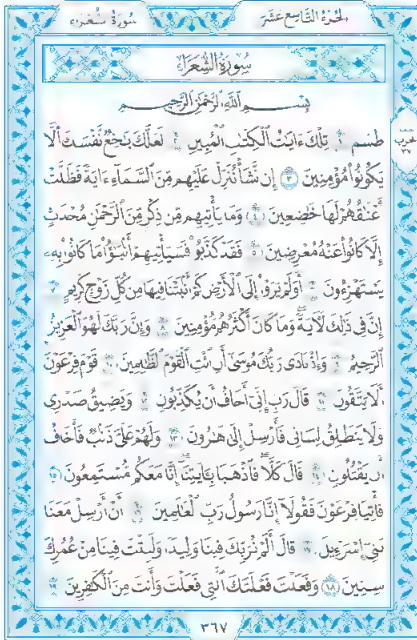 الجزء التاسع عشر
سورة الشعراء
سُورَةُ الشُّعَرَاء
بِسْمِ اللَّهِ الرَّحْمَٰنِ الرَّحِيمِ
الحزب
طسٓمٓ ١ تِلْكَ ءَايَٰتُ ٱلْكِتَٰبِ ٱلْمُبِينِ ٢ لَعَلَّكَ بَٰخِعٌ نَّفْسَكَ أَلَّا
يَكُونُوا۟ مُؤْمِنِينَ ٣ إِن نَّشَأْ نُنَزِّلْ عَلَيْهِم مِّنَ ٱلسَّمَآءِ ءَايَةً فَظَلَّتْ
أَعْنَٰقُهُمْ لَهَا خَٰضِعِينَ ٤ وَمَا يَأْتِيهِم مِّن ذِكْرٍ مِّنَ ٱلرَّحْمَٰنِ مُحْدَثٍ
إِلَّا كَانُوا۟ عَنْهُ مُعْرِضِينَ ٥ فَقَدْ كَذَّبُوا۟ فَسَيَأْتِيهِمْ أَنۢبَٰٓؤُا۟ مَا كَانُوا۟ بِهِۦ
يَسْتَهْزِءُونَ ٦ أَوَلَمْ يَرَوْا۟ إِلَى ٱلْأَرْضِ كَمْ أَنۢبَتْنَا فِيهَا مِن كُلِّ زَوْجٍ كَرِيمٍ ٧
إِنَّ فِى ذَٰلِكَ لَءَايَةً وَمَا كَانَ أَكْثَرُهُم مُّؤْمِنِينَ ٨ وَإِنَّ رَبَّكَ لَهُوَ ٱلْعَزِيزُ
ٱلرَّحِيمُ ٩ وَإِذْ نَادَىٰ رَبُّكَ مُوسَىٰٓ أَنِ ٱئْتِ ٱلْقَوْمَ ٱلظَّٰلِمِينَ ١٠ قَوْمَ فِرْعَوْنَ
أَلَا يَتَّقُونَ ١١ قَالَ رَبِّ إِنِّىٓ أَخَافُ أَن يُكَذِّبُونِ ١٢ وَيَضِيقُ صَدْرِى
وَلَا يَنطَلِقُ لِسَانِى فَأَرْسِلْ إِلَىٰ هَٰرُونَ ١٣ وَلَهُمْ عَلَىَّ ذَنۢبٌ فَأَخَافُ
أَن يَقْتُلُونِ ١٤ قَالَ كَلَّا فَٱذْهَبَا بِـَٔايَٰتِنَآ إِنَّا مَعَكُم مُّسْتَمِعُونَ ١٥
فَأْتِيَا فِرْعَوْنَ فَقُولَآ إِنَّا رَسُولُ رَبِّ ٱلْعَٰلَمِينَ ١٦ أَنْ أَرْسِلْ مَعَنَا
بَنِىٓ إِسْرَٰٓءِيلَ ١٧ قَالَ أَلَمْ نُرَبِّكَ فِينَا وَلِيدًا وَلَبِثْتَ فِينَا مِنْ عُمُرِكَ
سِنِينَ ١٨ وَفَعَلْتَ فَعْلَتَكَ ٱلَّتِى فَعَلْتَ وَأَنتَ مِنَ ٱلْكَٰفِرِينَ ١٩
٣٦٧